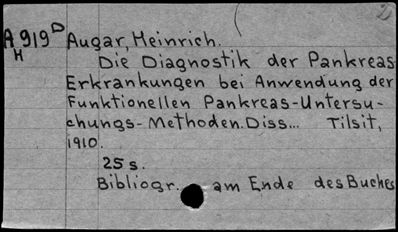 A 919 D Augar, Heinrich.
H
Die Diagnostik der Pankreas
Erkrankungen bei Anwendung der
Funktionellen Pankreas-Untersu-
chungs-Methoden. Diss... Tilsit,
1910.
25 s.
Bibliogr. am Ende des Buches